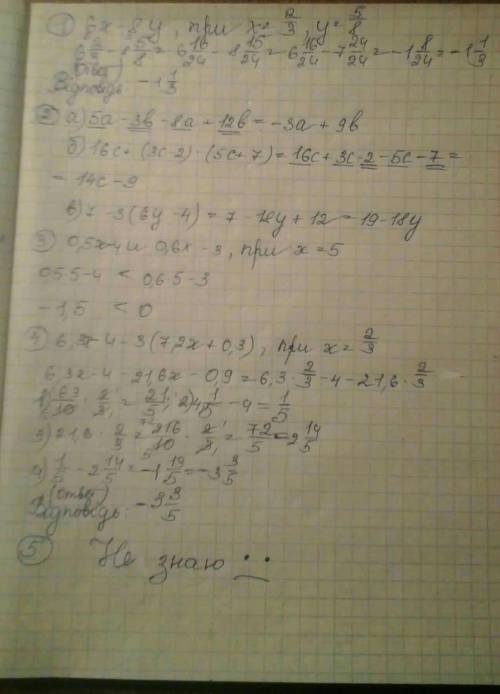 ① 6x - 8y, при x = 2/3, y = 5/8
6 2/3 - 8 5/8 = 6 16/24 - 8 15/24 = 6 16/24 - 7 24/24 = -1 8/24 = -1 1/3
(Ответ)
Відповідь: -1 1/3
② а) 5a - 3b - 8a + 12b = -3a + 9b
б) 16c + (3c - 2) - (5c + 7) = 16c + 3c - 2 - 5c - 7 =
= 14c - 9
в) 7 - 3(6y - 4) = 7 - 18y + 12 = 19 - 18y
③ 0,5x-4 и 0,6x - 3, при x = 5
0,5·5-4 < 0,6·5-3
-1,5 < 0
④ 6,3x - 4 - 3(7,2x + 0,3), при x = 2/3
6,3x - 4 - 21,6x - 0,9 = 6,3 · 2/3 - 4 - 21,6 · 2/3
1) 63/10 · 2/3 = 21/5; 2) 4 1/5 - 4 = 1/5
3) 21,6 · 2/3 = 216/10 · 2/3 = 72/5 = 2 14/5
4) 1/5 - 2 14/5 = -1 19/5 = -3 3/5
(ответ)
Відповідь: -3 3/5
⑤ Не знаю